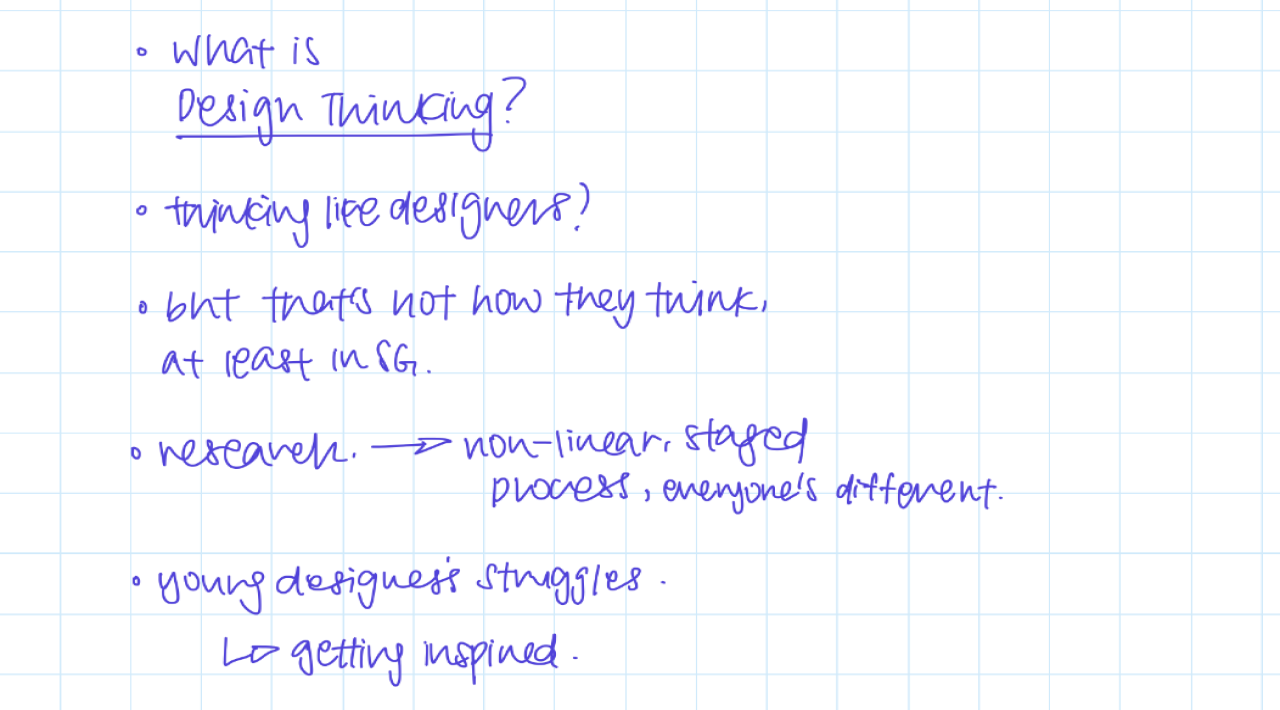 • what is
Design Thinking?
• thinking like designers?
• but that's not how they think,
at least in SG.
• research. → non-linear, staged
process, everyone's different.
• young designer's struggles.
↳ getting inspired.